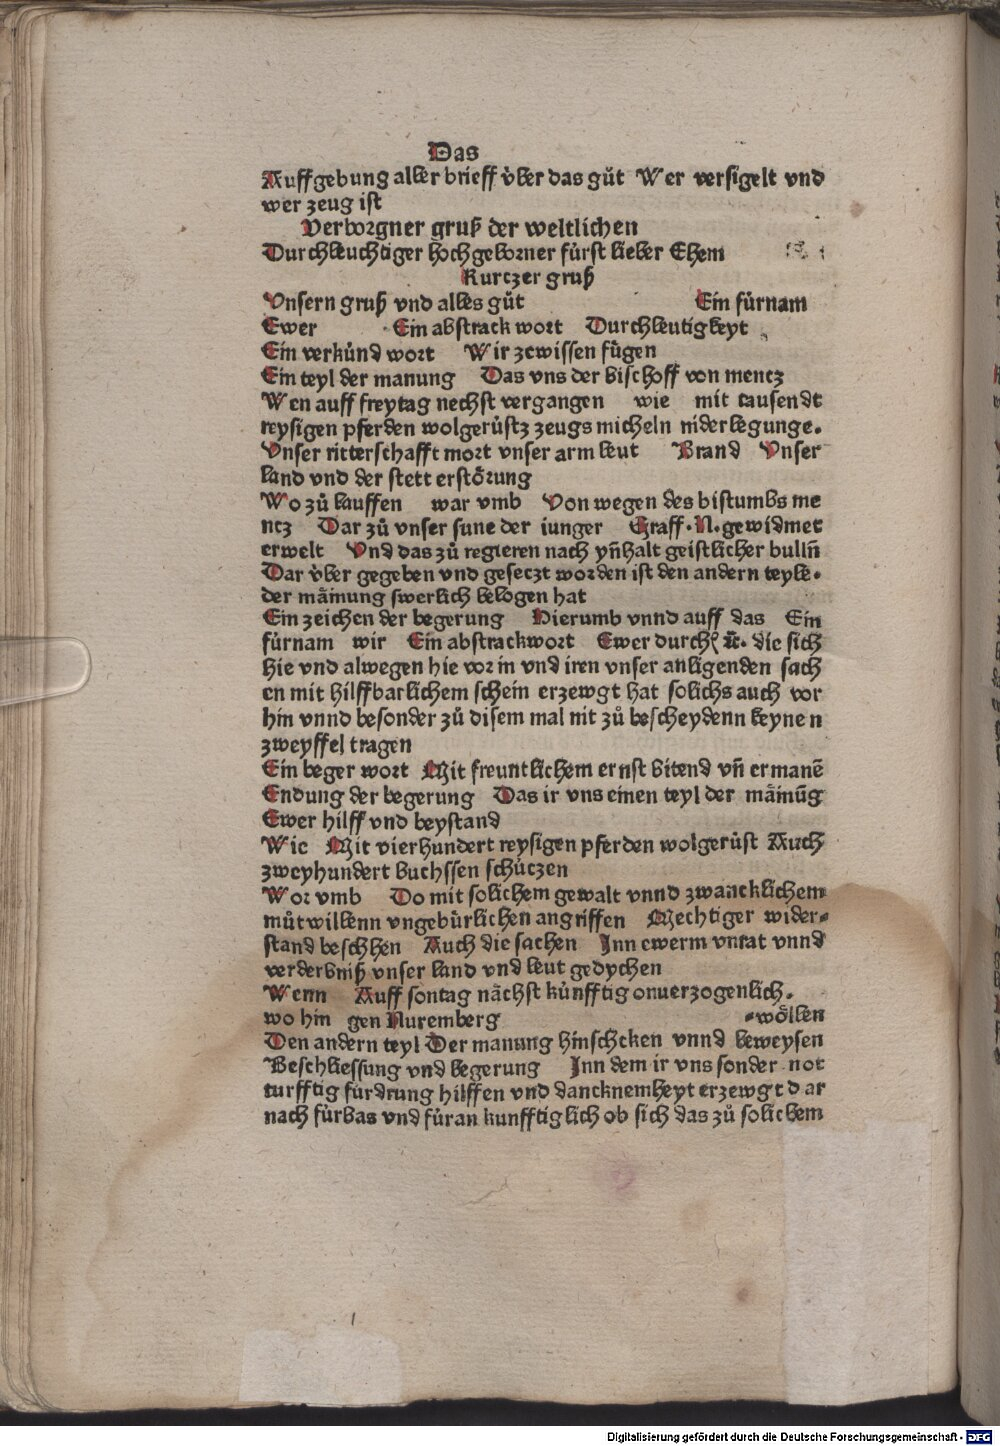 Das
Auffgebung aller brieff v̊ber das gůt Wer versigelt vnd
wer zeug ist
Verborgner gruß der weltlichen
Durchleuchtiger hochgeborner fürst lieber Ehem
Kurtzer gruß
Vnsern gruß vnd alles gůt Ein fürnam
Ewer Ein abstrack wort Durchleutigkeyt
Ein verkůnd wort Wir zewissen fůgen
Ein teyl der manung Das vns der bischoff von mentz
Wen auff freytag nechst vergangen wie mit tausendt
reysigen pferden wolgerůstz zeugs micheln niderlegunge.
Vnser ritterschafft mort vnser arm leut Brand Vnser
land vnd der stett erstörung
Wo zů lauffen war vmb Von wegen des bistumbs me
ntz Dar zů vnser sune der iunger Graff .N. gewidmet
erwelt Vnd das zů regieren nach yñhalt geistlicher bullñ
Dar v̊ber gegeben vnd gesetzt worden ist den andern teyle.
der mãinung swerlich belogen hat
Ein zeichen der begerung Hierumb vnnd auff das Ein
fürnam wir Ein abstrackwort Ewer durchl ꝛc̄. die sich
hie vnd alwegen hie vor in vnd iren vnser anligenden sach
en mit hilffbarlichem schein erzewgt hat solichs auch vor
hin vnnd besonder zů disem mal nit zů bescheydenn keynen
zweyffel tragen
Ein beger wort Mit freuntlichem ernst bitend vñ ermanẽ
Endung der begerung Das ir vns einen teyl der mãinũg
Ewer hilff vnd beystand
Wie Mit vierhundert reysigen pferden wolgerůst Auch
zweyhundert buchssen schůczen
Wor vmb Do mit solichem gewalt vnnd zwancklichem
můtwillenn vngebürlichen angriffen Mechtiger wider-
stand beschhen Auch die sachen Inn ewerm vnrat vnnd
verderbniß vnser land vnd leut gedychen
Wenn Auff sontag nächst kůnfftig onuerzogenlich.
wo hin gen Nuremberg -wöllen
Den andern teyl Der manung hinschcken vnnd beweysen
Beschliessung vnd begerung Inn dem ir vns sonder not
turfftig fürdrung hilffen vnd dancknemheyt erzewgt dar
nach fürbas vnd füran kunfftiglich ob sich das zů solichem
Digitalisierung gefördert durch die Deutsche Forschungsgemeinschaft - DFG